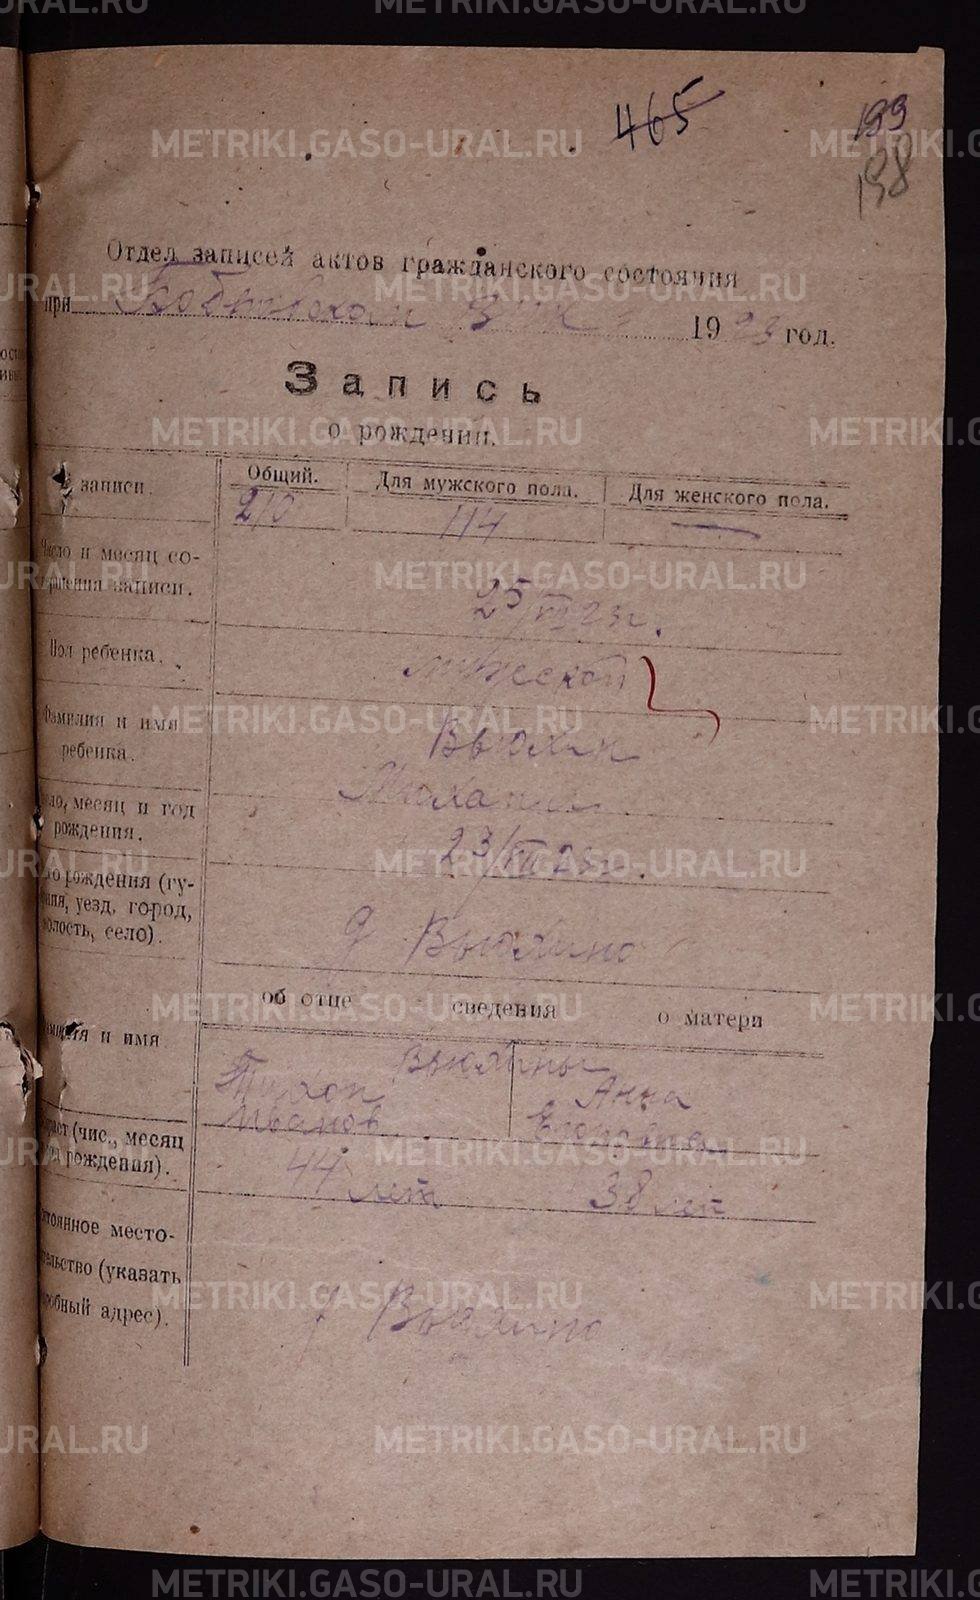 465
199
198
Отдел записей актов гражданского состояния
при Кобтовском ЗАГСе 1923 год.
Запись
о рождении.
№ записи. Общий. Для мужского пола. Для женского пола.
210 114 —
Число и месяц со-
вершения записи.
25/VII 23 г.
Пол ребенка. мужской
Фамилия и имя
ребенка.
Вьюхин
Михаил
Число, месяц и год
рождения.
23/VII 23 г.
рождения (гу-
уезд, город,
волость, село).
д Вьюхино
об отце сведения о матери
Фамилия и имя
Вьюхины
Тихон Анна
Иванов Егоровна
(чис., месяц
рождения).
44 лет 38 лет
место-
(указать
адрес).
д Вьюхино
METRIKI.GASO-URAL.RU